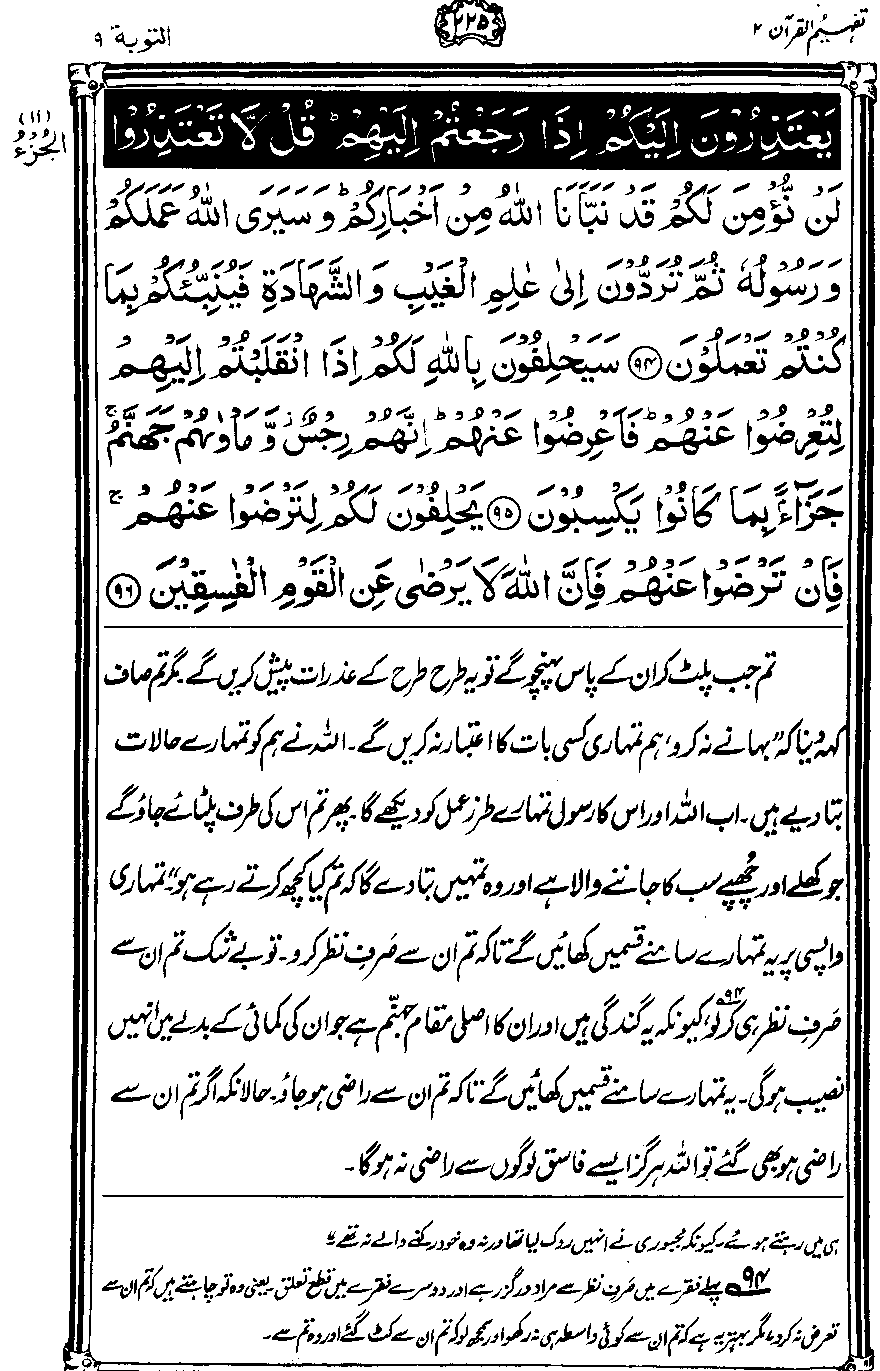 تفہیم القرآن ۲
۲۲۵
التوبۃ ۹
الجزء (۱۱)
يَعْتَذِرُوْنَ اِلَيْكُمْ اِذَا رَجَعْتُمْ اِلَيْهِمْ ؕ قُلْ لَّا تَعْتَذِرُوْا
لَنْ نُّؤْمِنَ لَكُمْ قَدْ نَبَّاَنَا اللّٰهُ مِنْ اَخْبَارِكُمْ ؕ وَسَيَرَى اللّٰهُ عَمَلَكُمْ
وَرَسُوْلُهٗ ثُمَّ تُرَدُّوْنَ اِلٰى عٰلِمِ الْغَيْبِ وَالشَّهَادَةِ فَيُنَبِّئُكُمْ بِمَا
كُنْتُمْ تَعْمَلُوْنَ ﴿۹۴﴾ سَيَحْلِفُوْنَ بِاللّٰهِ لَكُمْ اِذَا انْقَلَبْتُمْ اِلَيْهِمْ
لِتُعْرِضُوْا عَنْهُمْ ؕ فَاَعْرِضُوْا عَنْهُمْ ؕ اِنَّهُمْ رِجْسٌ ز وَّ مَاْوٰىهُمْ جَهَنَّمُ ۚ
جَزَآءًۢ بِمَا كَانُوْا يَكْسِبُوْنَ ﴿۹۵﴾ يَحْلِفُوْنَ لَكُمْ لِتَرْضَوْا عَنْهُمْ ۚ
فَاِنْ تَرْضَوْا عَنْهُمْ فَاِنَّ اللّٰهَ لَا يَرْضٰى عَنِ الْقَوْمِ الْفٰسِقِيْنَ ﴿۹۶﴾
تم جب پلٹ کر ان کے پاس پہنچو گے تو یہ طرح طرح کے عذرات پیش کریں گے۔ مگر تم صاف
کہہ دینا کہ ”بہانے نہ کرو، ہم تمہاری کسی بات کا اعتبار نہ کریں گے۔ اللہ نے ہم کو تمہارے حالات
بتا دیے ہیں۔ اب اللہ اور اس کا رسول تمہارے طرز عمل کو دیکھے گا۔ پھر تم اس کی طرف پلٹائے جاؤ گے
جو کھلے اور چُھپے سب کا جاننے والا ہے اور وہ تمہیں بتا دے گا کہ تم کیا کچھ کرتے رہے ہو“۔ تمہاری
واپسی پر یہ تمہارے سامنے قسمیں کھائیں گے تاکہ تم ان سے صَرفِ نظر کرو۔ تو بے شک تم ان سے
صَرفِ نظر ہی کر لو،۹۴ کیونکہ یہ گندگی ہیں اور ان کا اصلی مقام جہنّم ہے جو ان کی کمائی کے بدلے میں انہیں
نصیب ہوگی۔ یہ تمہارے سامنے قسمیں کھائیں گے تاکہ تم ان سے راضی ہو جاؤ۔ حالانکہ اگر تم ان سے
راضی ہو بھی گئے تو اللہ ہرگز ایسے فاسق لوگوں سے راضی نہ ہوگا۔
ہی میں رہتے ہوئے۔ کیونکہ مجبوری نے انہیں روک لیا تھا ورنہ وہ خود رکنے والے نہ تھے“
۹۴ پہلے فقرے میں صَرفِ نظر سے مراد درگزر ہے اور دوسرے فقرے میں قطع تعلق۔ یعنی وہ تو چاہتے ہیں کہ تم ان سے
تعرض نہ کرو، مگر بہتر یہ ہے کہ تم ان سے کوئی واسطہ ہی نہ رکھو اور سمجھ لو کہ تم ان سے کٹ گئے اور وہ تم سے۔